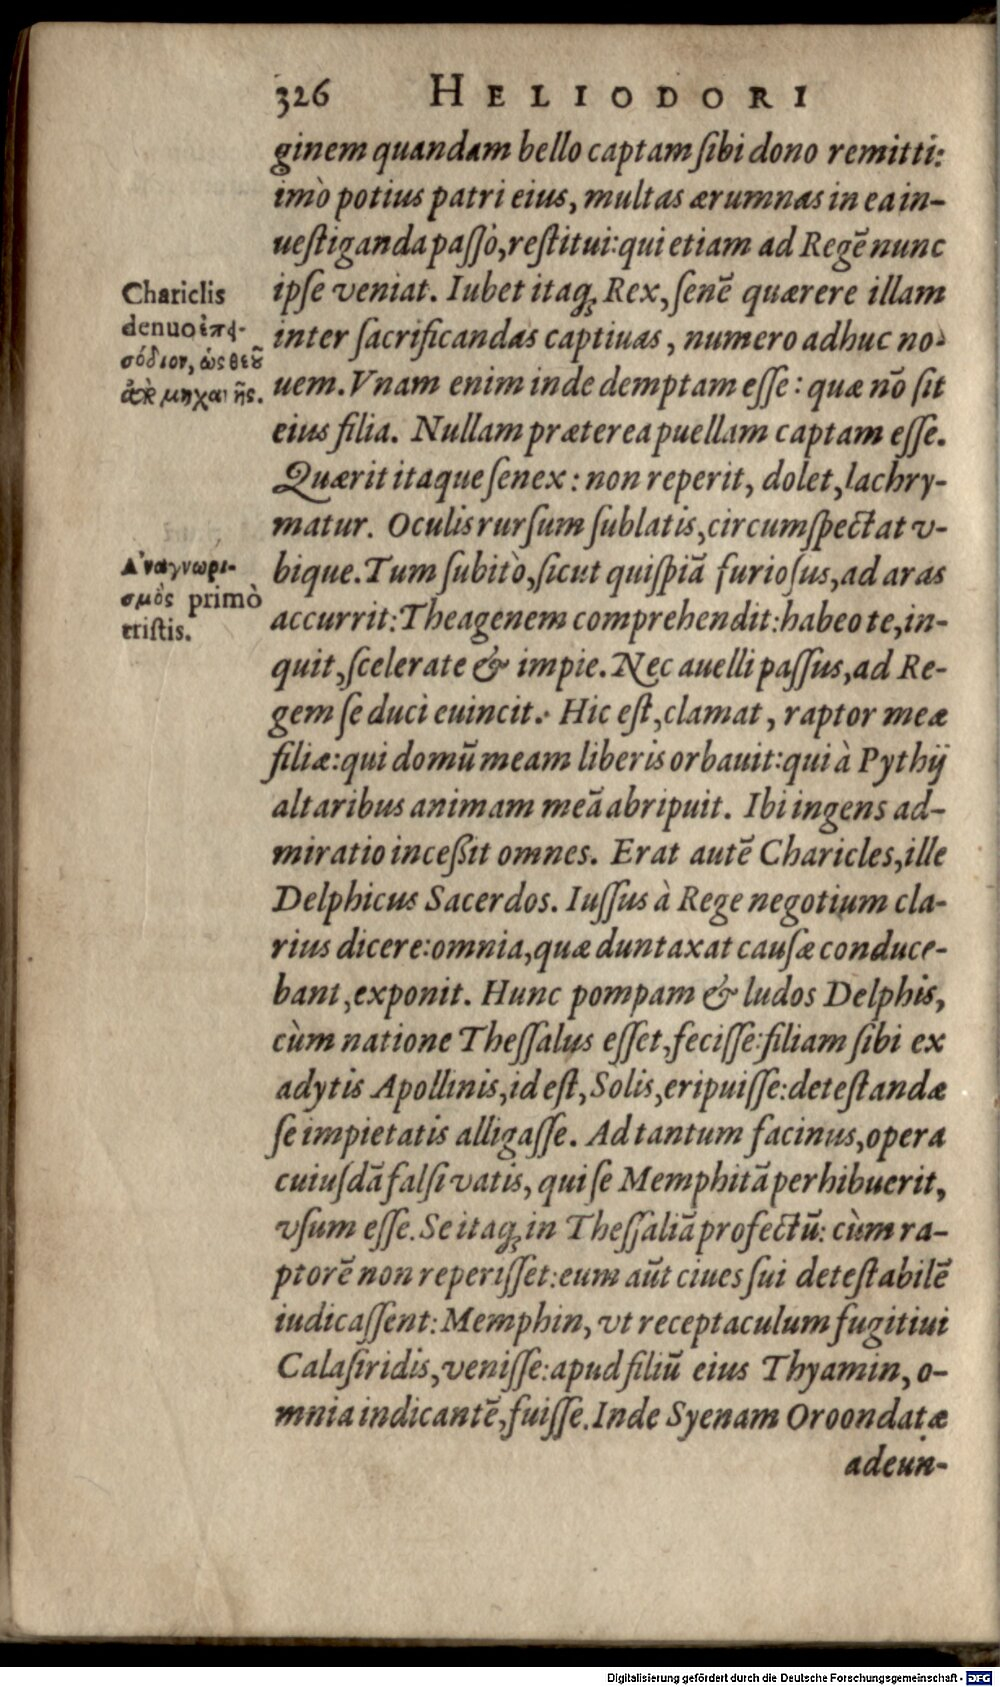 326 HELIODORI
ginem quandam bello captam ſibi dono remitti:
imò potius patri eius, multas ærumnas in ea in-
ueſtiganda paſſo, reſtitui: qui etiam ad Regē nunc
ipſe veniat. Iubet itaq; Rex, ſenē quærere illam
inter ſacrificandas captiuas, numero adhuc no-
uem. Vnam enim inde demptam eſſe: quæ nō ſit
eius filia. Nullam præterea puellam captam eſſe.
Quærit itaque ſenex: non reperit, dolet, lachry-
matur. Oculis rurſum ſublatis, circumſpectat v-
bique. Tum ſubitò, ſicut quiſpiā furioſus, ad aras
accurrit: Theagenem comprehendit: habeo te, in-
quit, ſcelerate & impie. Nec auelli paſſus, ad Re-
gem ſe duci euincit. Hic eſt, clamat, raptor meæ
filiæ: qui domū meam liberis orbauit: qui à Pythij
altaribus animam meā abripuit. Ibi ingens ad-
miratio inceßit omnes. Erat autē Charicles, ille
Delphicus Sacerdos. Iuſſus à Rege negotium cla-
rius dicere: omnia, quæ duntaxat cauſæ conduce-
bant, exponit. Hunc pompam & ludos Delphis,
cùm natione Theſſalus eſſet, feciſſe: filiam ſibi ex
adytis Apollinis, id eſt, Solis, eripuiſſe: deteſtandæ
ſe impietatis alligaſſe. Ad tantum facinus, opera
cuiuſdā falſi vatis, qui ſe Memphitā perhibuerit,
vſum eſſe. Se itaq; in Theſſaliā profectū: cùm ra-
ptorē non reperiſſet: eum aūt ciues ſui deteſtabilē
iudicaſſent: Memphin, vt receptaculum fugitiui
Calaſiridis, veniſſe: apud filiū eius Thyamin, o-
mnia indicantē, fuiſſe. Inde Syenam Oroondatæ
adeun-
Chariclis
denuo ἐπφ-
σόδιον, ὡς θεοῦ
ἀπὸ μηχανῆς.
Ἀναγνωρι-
σμὸς primò
triſtis.
Digitalisierung gefördert durch die Deutsche Forschungsgemeinschaft - DFG